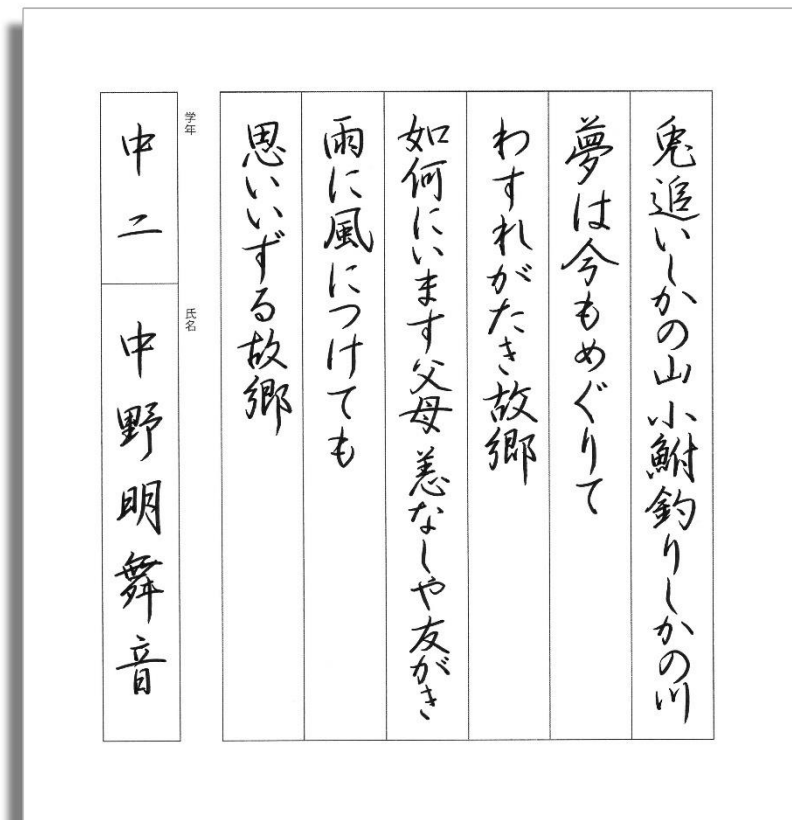 兎追いしかの山 小鮒釣りしかの川
夢は今もめぐりて
わすれがたき故郷
如何にいます父母 恙なしや友がき
雨に風につけても
思いいずる故郷
学年
中二
氏名
中野明舞音